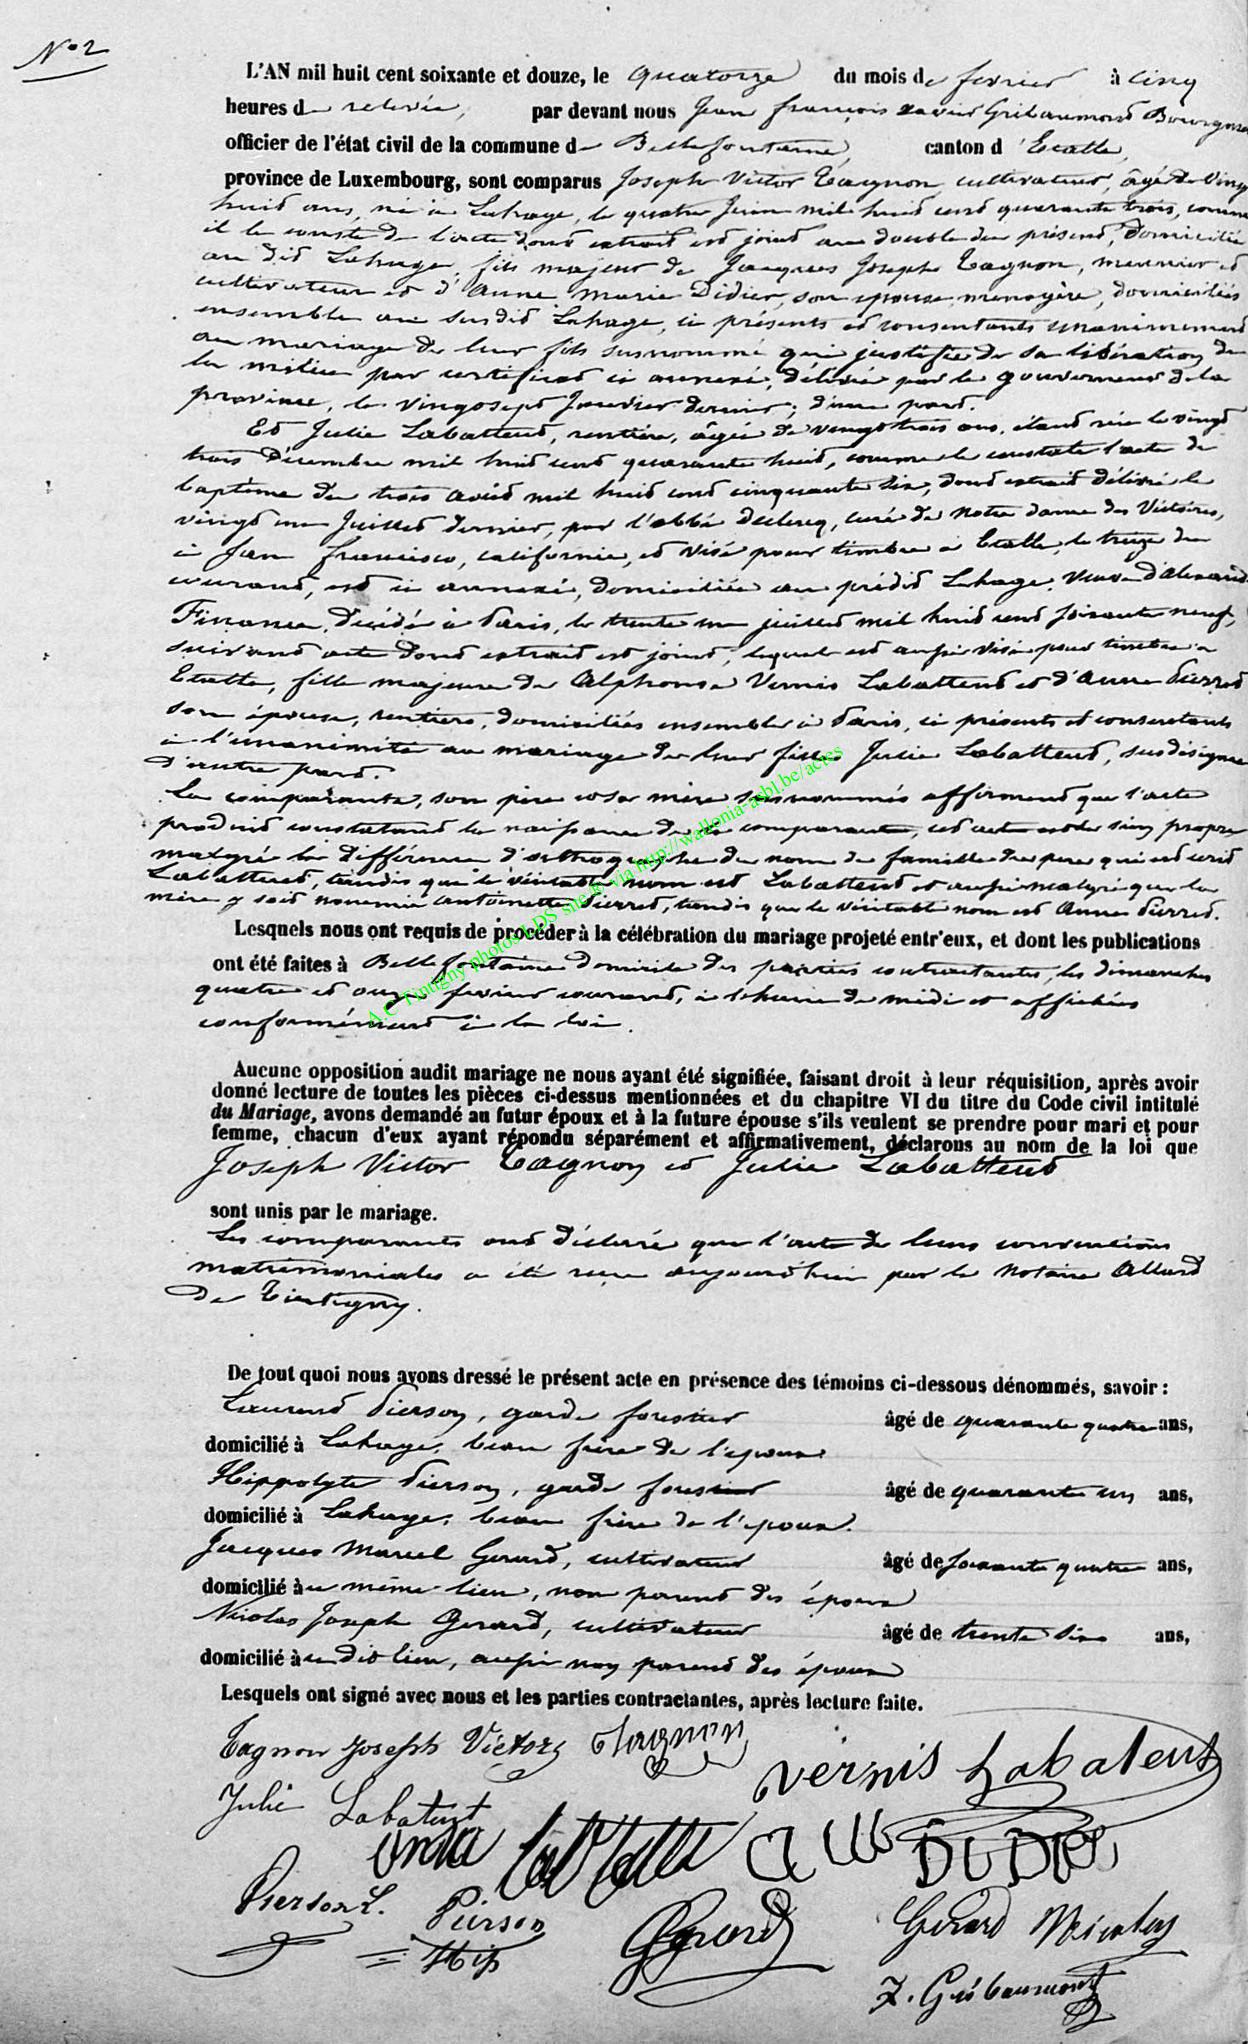 N° 2
L'AN mil huit cent soixante et douze, le quatorze du mois de fevrier à cinq
heures de relevée, par devant nous Jean françois xavier Gribaumont Bourgmes
officier de l'état civil de la commune de Bellefontaine, canton d'Etalle,
province de Luxembourg, sont comparus Joseph Victor Tagnon, cultivateur, âgé de vingt
huit ans, né à Lahage, le quatre Juin mil huit cent quarante trois, comme
il le conste de l'acte dont extrait est joint au double du présent, domicilié
au dit Lahage, fils majeur de Jacques Joseph Tagnon, meunier et
cultivateur et d'Anne Marie Didier, son épouse, menagère, domiciliés
ensemble au susdit Lahage, ci présents et consentants unanimement
au mariage de leur fils susnommé qui justifie de sa libération de
la milice par certificat ci annexé, délivré par le gouverneur de la
province, le vingt sept Janvier dernier; d'une part.
Et Julie Labattent, rentière, âgée de vingt trois ans, étant née le vingt
trois Décembre mil huit cent quarante huit, comme le constate l'acte de
baptême du trois avril mil huit cent cinquante six, dont extrait délivré le
vingt un Juillet dernier, par l'abbé declercq, curé de Notre dame des Victoires,
à San francisco, californie, et visé pour timbre à Etalle, le treize du
courant, est ci annexé, domiciliée au prédit Lahage, veuve d'alexand
Finance, décédé à Paris, le trente un juillet mil huit cent soixante neuf,
suivant acte dont extrait est joint, lequel est aussi visé pour timbre à
Etalle, fille majeure de Alphonse Vernis Labattent et d'Anne Pierret
son épouse, rentiers, domiciliés ensemble à Paris, ci présents et consentants
à l'unanimité au mariage de leur fille Julie Labattent, susdésignée
d'autre part.
La comparante, son père et sa mère susnommés affirment que l'acte
produit constatant la naissance de la comparante, est acte et de sien propre
malgré la différence d'orthographe du nom de famille du père qui est écrit
Labattent, tandis que le véritable nom est Labattent et aussi malgré que la
mère y soit nommée antoinette Pierret, tandis que le véritable nom est Anne Pierret.
Lesquels nous ont requis de procéder à la célébration du mariage projeté entr'eux, et dont les publications
ont été faites à Bellefontaine domicile des parties contractantes, les dimanches
quatre et onze fevrier courant, à l'heure de midi et affichées
conformément à la loi.
Aucune opposition audit mariage ne nous ayant été signifiée, faisant droit à leur réquisition, après avoir
donné lecture de toutes les pièces ci-dessus mentionnées et du chapitre VI du titre du Code civil intitulé
du Mariage, avons demandé au futur époux et à la future épouse s'ils veulent se prendre pour mari et pour
femme, chacun d'eux ayant répondu séparément et affirmativement, déclarons au nom de la loi que
Joseph Victor Tagnon et Julie Labattent
sont unis par le mariage.
Les comparants ont déclaré que l'acte de leurs conventions
matrimoniales a été reçu aujourd'hui par le Notaire Allard
de Tintigny.
De tout quoi nous avons dressé le présent acte en présence des témoins ci-dessous dénommés, savoir :
Laurent Pierson, garde forestier âgé de quarante quatre ans,
domicilié à Lahage, beau frère de l'époux
Hippolyte Pierson, garde forestier âgé de quarante un ans,
domicilié à Lahage, beau frère de l'époux.
Jacques Marcel Gerard, cultivateur âgé de soixante quatre ans,
domicilié au même lieu, non parent des époux
Nicolas Joseph Gerard, cultivateur âgé de trente six ans,
domicilié au dit lieu, aussi non parent des époux
Lesquels ont signé avec nous et les parties contractantes, après lecture faite.
Tagnon Joseph Victor Tagnon
vernis Labatent
Julie Labatent
Pierson L. Pierson Hip Gerard Gérard Nicolas
X. Gribaumont
A.C Tintigny photos LDS sneto via http://wallonia-asbl.be/actes